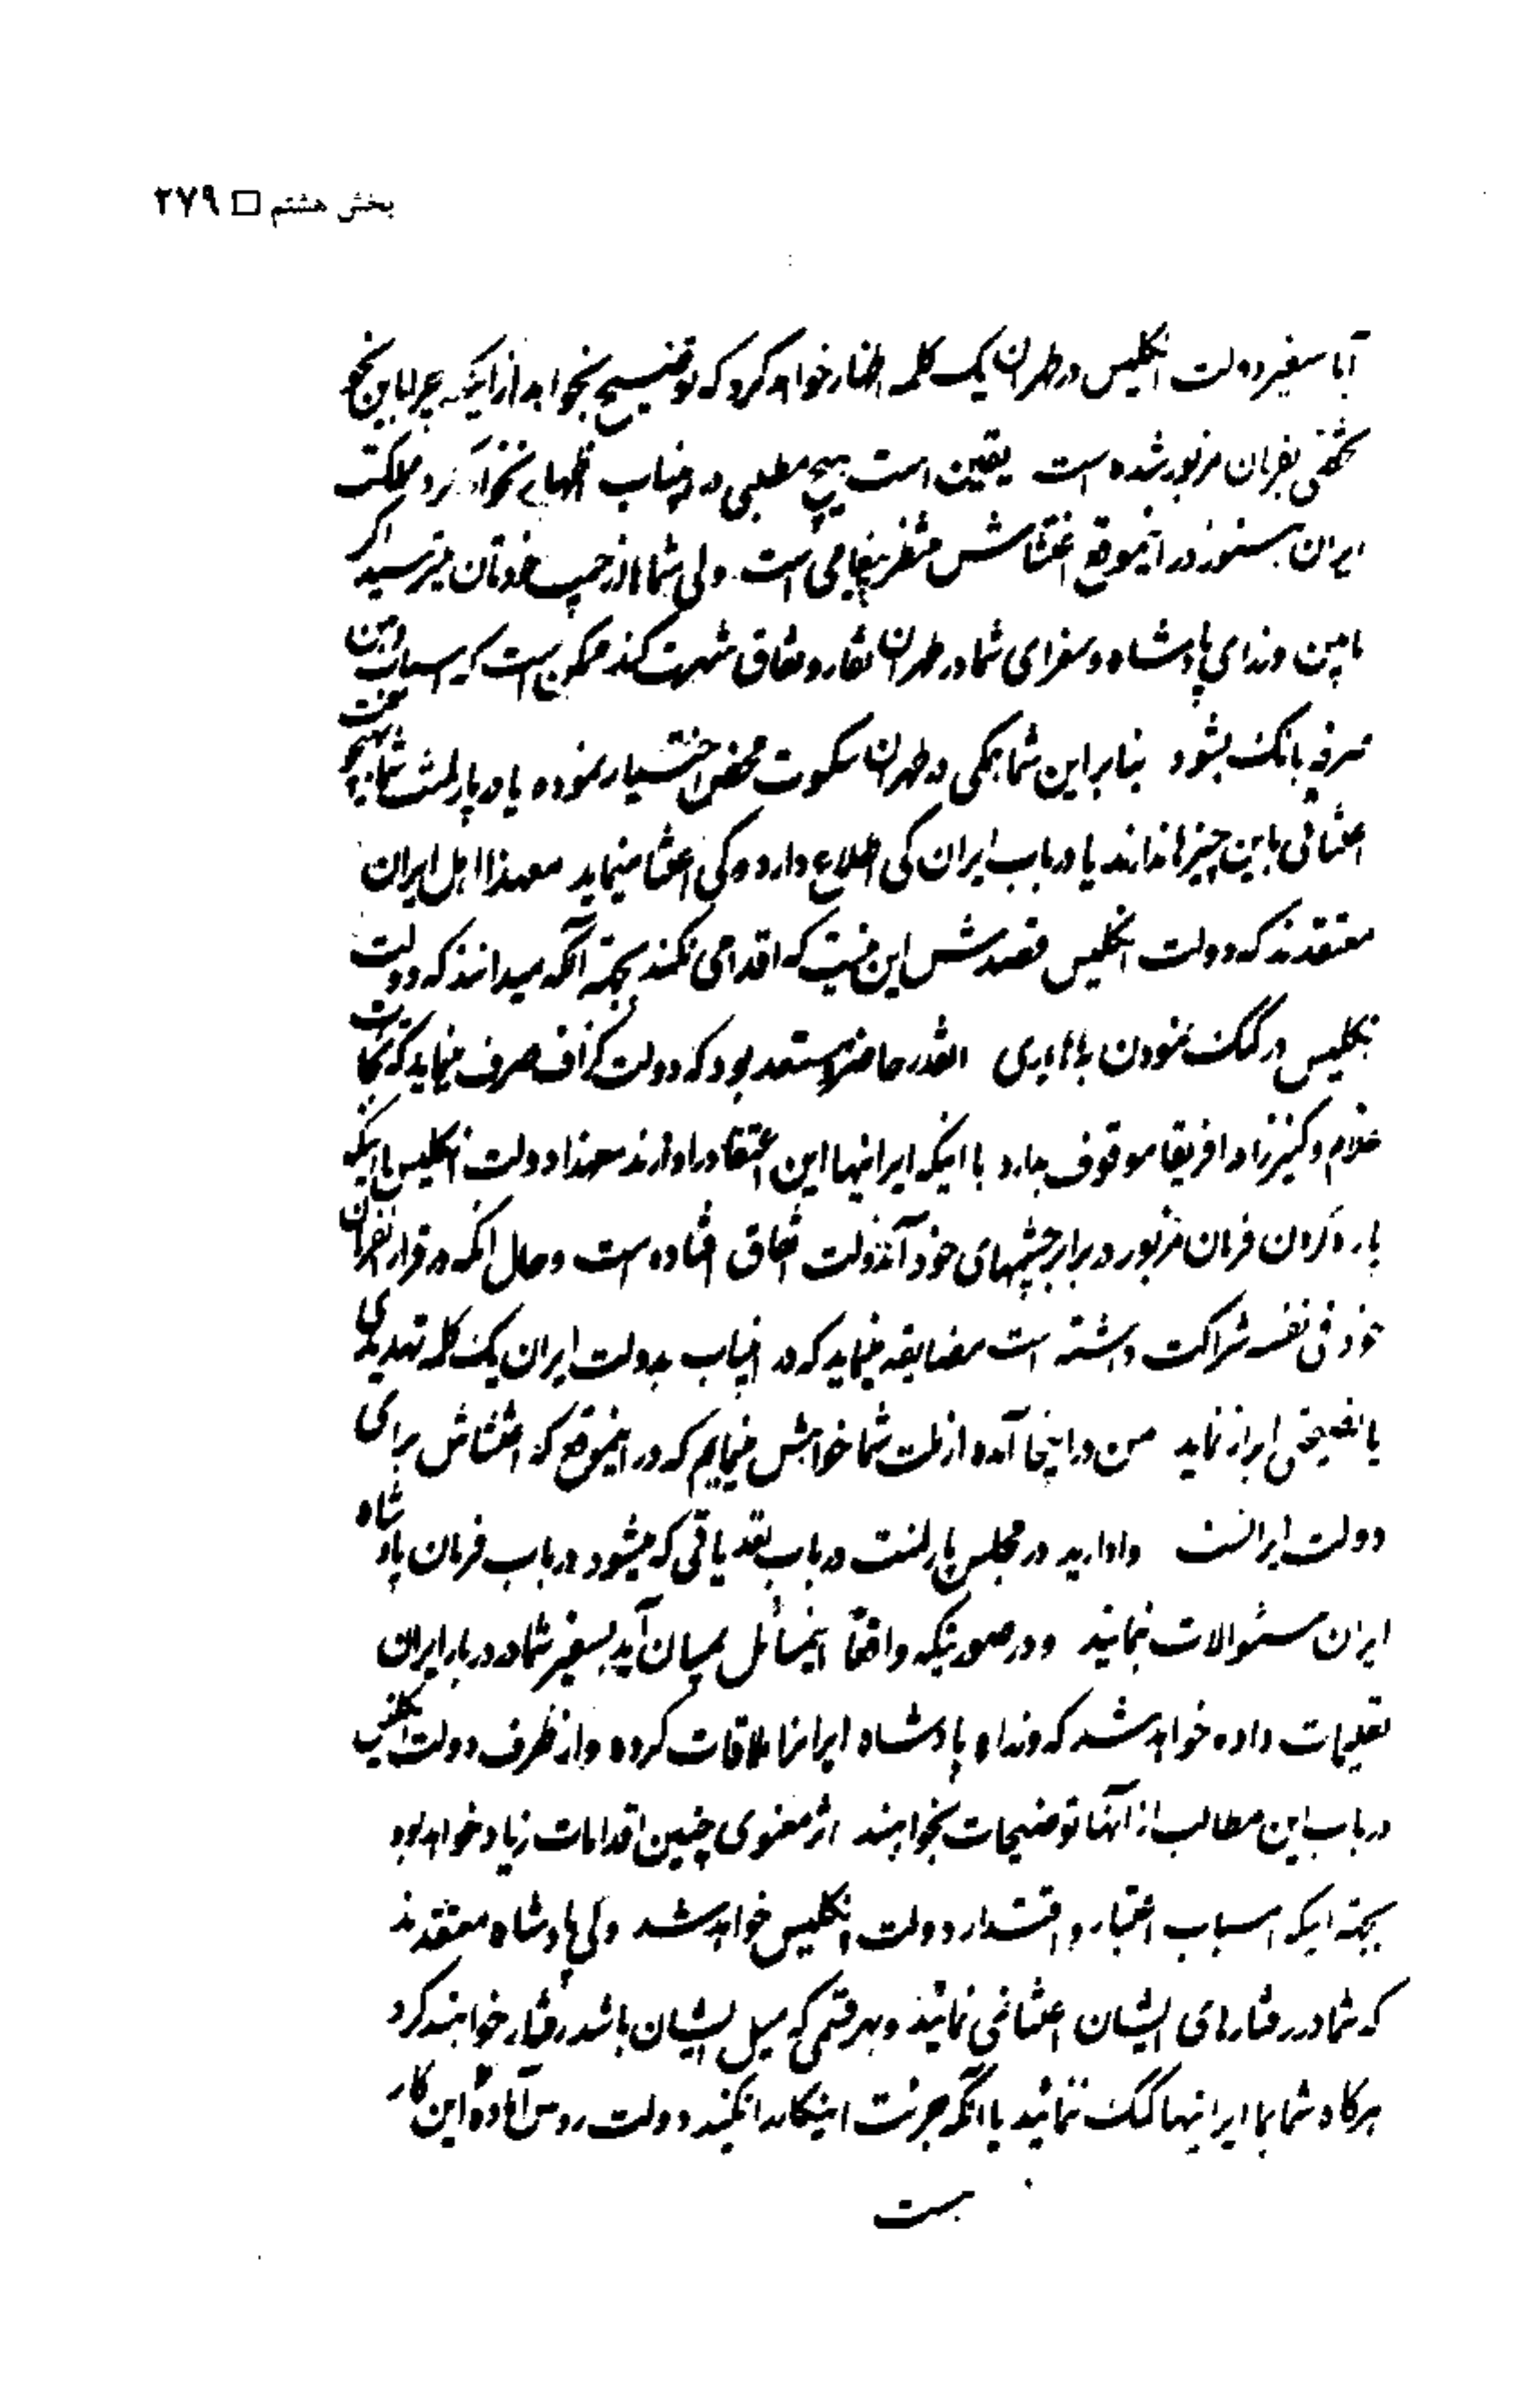 بخش هشتم □ ۲۷۹
آیا سفیر دولت انگلیس در طهران یک کلمه اظهار خواهد کرد که توضیح بخواهد از اینکه چرا باین نحو
تخلفی بفرمان مزبور شده است یقین است هیچ مطلبی در اینباب اظهار نخواهد کرد مملکت
ایران هنوز در اینموقع اغتشاش منتظر پیغامی است ولی شما از حیب خودتان میترسید اگر
مابین وزرای پادشاه و سفرای شما در طهران نقار و نفاق شهرت کند ممکن است که اسباب
صرفه بانک بشود بنابراین شما همگی در طهران سکوت محض اختیار نموده یا در پارلمنت شما هیچ
اعتنائی باین چیزها ندارند یا در باب ایران کی اطلاع دارد و کی اعتنا مینماید معهذا اهل ایران
معتقدند که دولت انگلیس قصدش این نیست که اقدامی نکند بجهة آنکه میدانند که دولت
انگلیس در کمک نمودن باهالی آنقدر حاضر و مستعد بود که دولت گزاف صرف مینماید که تجارت
غلام و کنیز را در افریقا موقوف بدارد با اینکه ایرانیها این اعتقاد را دارند معهذا دولت انگلیس با اینکه
پاره کردن فرمان مزبور در برابر چشمهای خود آندولت اتفاق افتاده است و حال آنکه در قرار فرمان
خود فی نفسه شراکت داشته است مضایقه مینماید که در اینباب بدولت ایران یک کلمه تهدیدی
یا نصیحتی ابراز نماید من در اینجا آمده از ملت شما خواهش مینمایم که در اینموقع که اغتشاش برای
دولت ایرانست وادارید در مجلس پارلمنت در باب تعدیاتی که میشود در باب فرمان پادشاه
ایران سئوالات نمایند و در صورتیکه واقعاً اینمسائل بمیان آید بسفیر شما در دربار ایران
تعلیمات داده خواهد شد که وزراء و پادشاه ایرانرا ملاقات کرده و از طرف دولت انگلیس
در باب این مطالب از آنها توضیحات بخواهند اثر معنوی چنین اقدامات زیاد خواهد بود
بجهة اینکه اسباب اعتبار و اقتدار دولت انگلیس خواهد شد ولی پادشاه معتقدند
که شما در رفتارهای ایشان اعتنا نمی نمائید و بهر قسمی که میل ایشان باشد رفتار خواهند کرد
هرگاه شما با ایرانیها کمک ننمائید یا آنکه جرئت اینکار را نکنید دولت روس آماده این کار
هست